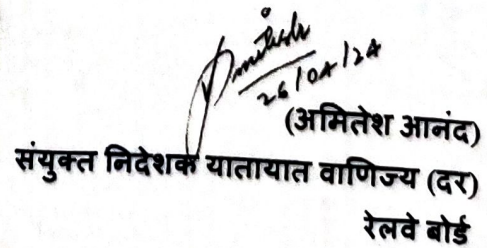 Amitesh
26/04/24
(अमितेश आनंद)
संयुक्त निदेशक यातायात वाणिज्य (दर)
रेलवे बोर्ड